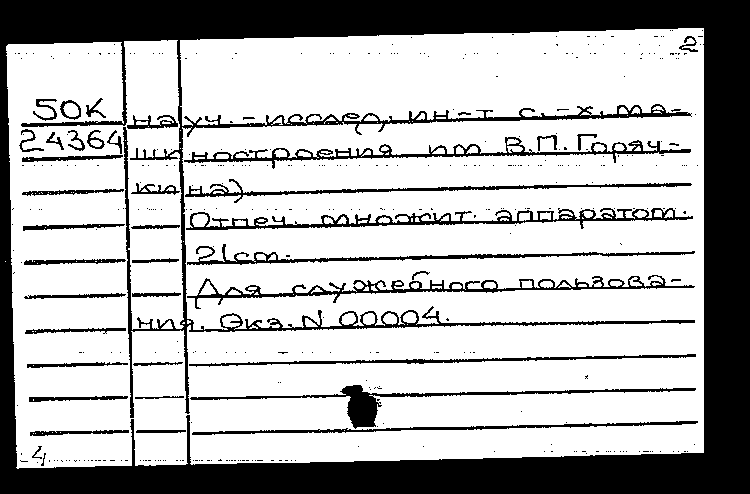 2
50К
24364
науч.-исслед. ин-т с.-х. ма-
шиностроения им В.П.Горяч-
кина)
Отпеч. множит. аппаратом.
21см.
Для служебного пользова-
ния. Экз. N 00004.
4